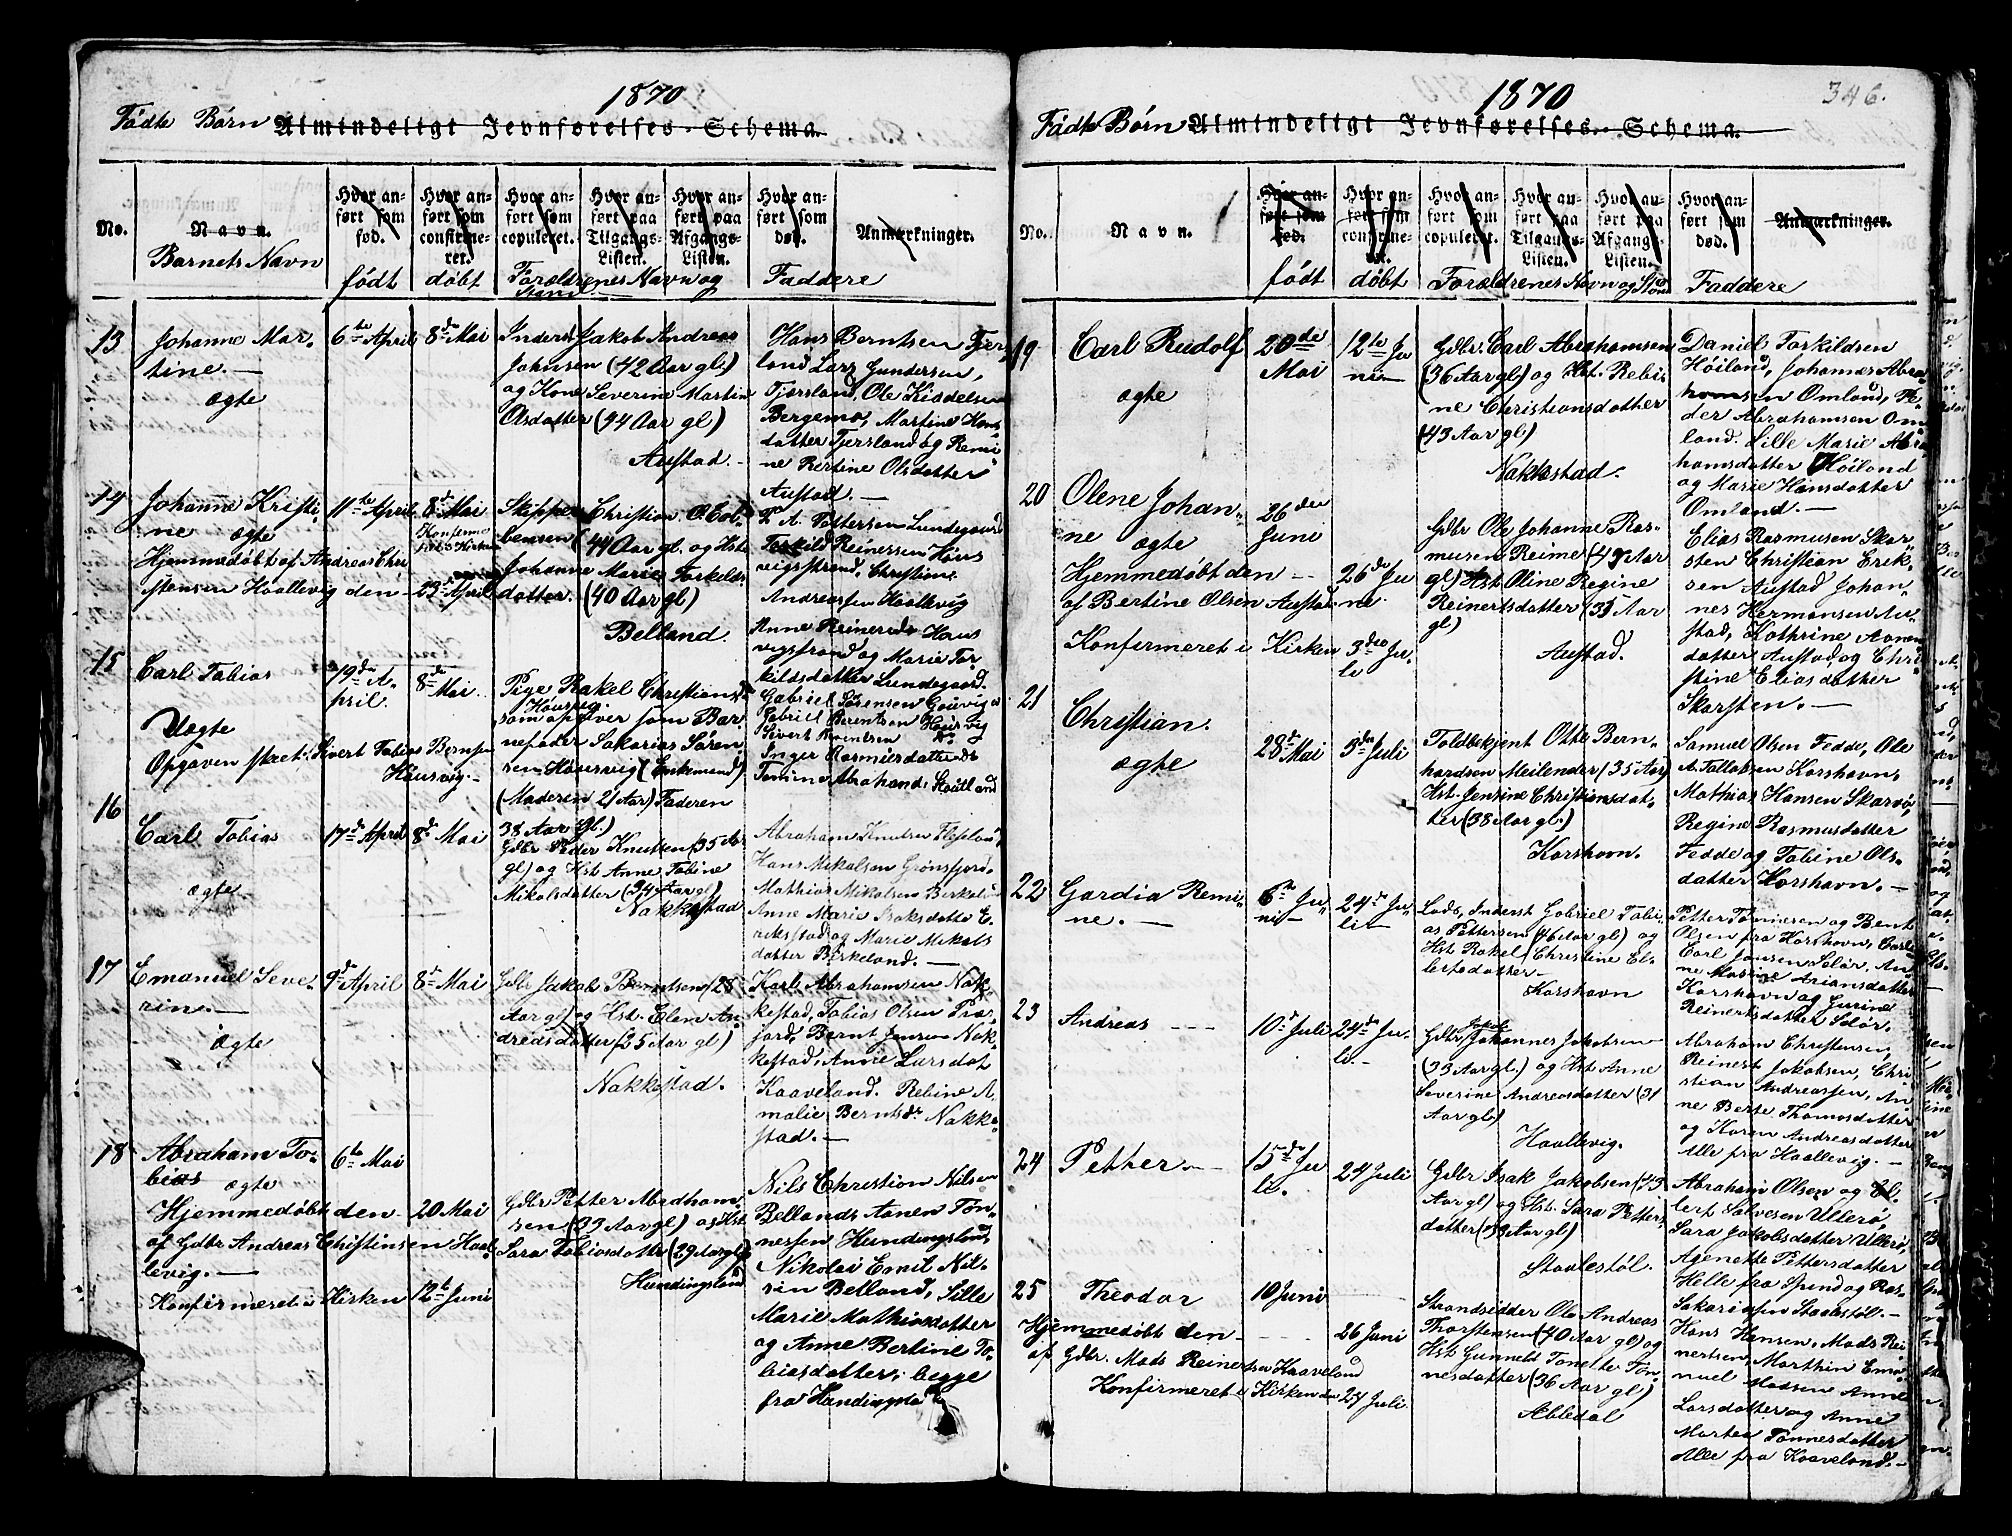 1870
Fødte Børn Almindeligt Jevnførelses-Schema.
No.
Navn.
Barnets Navn
Hvor anført som fød.
født
Hvor anført som confirmeret.
døbt
Hvor anført som copuleret.
Hvor anført paa Tilgangs-Listen.
Hvor anført paa Afgangs-Listen.
Forældrenes Navn og
Stand
Hvor anført som død.
Anmærkninger.
Faddere
13
Johanne Mar-
tine.
ægte
6te April
8de Mai
Inderst Jakob Andreas
Johnsen (42 Aar gl)
og Kone Severine Martin
Olsdatter (44 Aar gl)
Austad.
Hans Berntsen Tjer
land Lars Gundersen,
Tjørsland, Ole Kiddelsen
Bergemo, Martine Hans
datter Tjersland og Remi
ne Bertine Olsdatter
Austad.
14
Johanne Kristi-
ne ægte
Hjemmedøbt af Andreas Chri
stensen Haallevig den
11te April
8de Mai
Konferme
ret i Kirken
23de April
Skipper Christian O. Col-
bensen (41 Aar gl. og Hst
Johanne Marie Torkelds
datter. (40 Aar gl)
Belland.
P. A. Pettersen Lundegaard
Torkild Reinersen Haus
vigstrand, Christine
Andreassen Haallevig
Anne Reinersdr Haus
vigstrand og Marie Tor
kildsdatter Lundegaard.
15
Carl Tobias
Uægte
Opgaven skret: Sivert Tobias Bernsen
Hausvig.
19de A-
pril.
8de Mai.
Pige Rakel Christiansd
Hausvig.
som opgiver som Bar
nefader Sakarias Sören
sen Hausvig (Enkemand)
(Moderen 21 Aar) Faderen
38 Aar gl.)
Gabriel Sørensen Gouvig
Gabriel Berentsen Hausvig
Sivert Berentsen do
Inger Rasmusdatter do
Tomine Abrahamd. Skoitland
16
Carl Tobias
ægte
17de April
8de Mai
Gdbr Peder Knutsen (35 Aar
gl) og Hst Anne Tobine
Mikalsdatter (34 Aar gl)
Nakkestad
Abraham Knutsen Fleseland,
Hans Mikalsen Grønsfjord,
Mathias Mikalsen Birkeland
Anne Marie Isaksdatte E
rikstad og Marie Mikals
datter Birkeland.
17
Emanuel Seve-
rin.
ægte
9de April
8de Mai
Gdbr Jakob Berntsen (28
Aar gl) og Hst. Elen An
dreasdatter (25 Aar gl)
Nakkestad.
Karl Abrahamsen Nak
kestad, Tobias Olsen Præs
fjord, Bernt Jensen Nak
kestad, Anne Larsdat
Kaaveland. Rebine A
malie Berntsdr Nakke
stad.
18
Abraham To-
bias ægte
Hjemmedøbt den
af Gdbr Andreas Christinsen Haal
levig.
Konfirmeret i Kirken
6te Mai
20 Mai
12te Juni
Gdbr Petter Abraham
sen (33 Aar gl) og Hst
Sara Tobiasdatter (29 Aar gl)
Hundingsland
Nils Christian Nilsen
Belland, Aanen Tøn
nessen Hundingsland,
Nikolai Emil Nil-
sen Belland, Lille
Marie Mathiasdatter
og Anne Bertine To-
biasdatter, begge
fra Hundingsland
1870
346.
Fødte Børn Almindeligt Jevnførelses-Schema.
No.
Navn.
Hvor anført som fød.
født
Hvor anført som confirmeret.
døbt
Hvor anført som copuleret.
Hvor anført paa Tilgangs-Listen.
Hvor anført paa Afgangs-Listen.
Forældrenes Navn og Stand
Hvor anført som død.
Anmærkninger.
Faddere
19
Carl Rudolf
ægte
20de
Mai
12te Ju
ni
Gdbr. Carl Abrahamsen
(36 Aar gl) og Hst. Rebi-
ne Christiansdatter
(43 Aar gl)
Nakkestad.
Daniel Torkildsen
Høiland, Johannes Abra
hamsen Omland, Pe
der Abrahamsen Om
land. Lille Marie Abra
hamsdatter Høiland
og Marie Hansdatter
Omland.
20
Olene Johan-
ne ægte
Hjemmedøbt den
af Bertine Olsen Austad
Konfermeret i Kirken
26de
Juni
26de Ju
ni
3die Ju-
li
Gdbr Ole Johanne Ras-
musen Reime (43 Aar
gl) Hst. Oline Regine
Reinertsdatter (35 Aar
gl)
Austad.
Elias Rasmusen Skar
sten Christian Erik-
sen Austad Johan-
nes Hermansen Au
stad, Kathrine Aanen
datter Austad og Chri
stine Eliasdatter
Skarsten.
21
Christian.
ægte
28de Mai
3die Juli
Toldbekjent Otte Bern-
hardsen Meilender (35 Aar)
Hst. Jensine Christiansdat-
ter (38 Aar gl.)
Korshavn.
Samuel Olsen Fedde, Ole
A. Tallaksen Korshavn,
Mathias Hansen Skarvø,
Regine Rasmusdatter
Fedde og Tobine Ols-
datter Korshavn.
22
Gardia Remi-
ne.
6te Ju-
ni
24de Ju-
li
Lods, Inderst Gabriel Tobi
as Pettersen (46 Aar gl) og
Hst Rakel Christine El-
lefsdatter
Korshavn
Petter Tønnesen og Bent
Olsen fra Korshavn,
Carl Jansen Selør, An-
ne Marine Ariansdatter
Korshavn og Gurine
Reinertsdatter Selør.
23
Andreas
10de Juli
24de Ju-
li
Gdbr Jakob Johannes Jakobsen
(33 Aar gl.) og Hst Anne
Severine Andreasdatter (31
Aar gl)
Haallevig.
Abraham Christensen,
Reinert Jakobsen, Chri
stian Andreassen, An-
ne Berte Thomasdatter
og Karen Andreasdatter
Alle fra Haallevig.
24
Petter
15de Ju
li.
24 Juli
Gdbr Isak Jakobsen (43
Aar gl) og Hst. Sara Petters
datter (39 Aar gl)
Staalestøl.
Abraham Olsen og El-
lert Salvesen Ullerø,
Sara Jakobsdatter Ullerø,
Agenette Pettersdatter
Helle fra Spind og Ras.
Sakariasen Staalestøl.
25
Theodor
Hjemmedøbt den
af Gdbr. Mads Reinertsen Kaaveland
Konfirmeret i Kirken den
10 Juni
26 Juni
24 Juli
Strandsidder Ole Andreas
Thorstensen (40 Aar gl) og
Hst Gunneld Tonette Tøn-
nesdatter (36 Aar gl)
Abledal
Hans Hansen, Mads Rei
nertsen, Marthin Ema-
nuel Madsen Anne
Larsdatter og Anne
Martea Tønnesdatter
Alle fra Kaaveland.